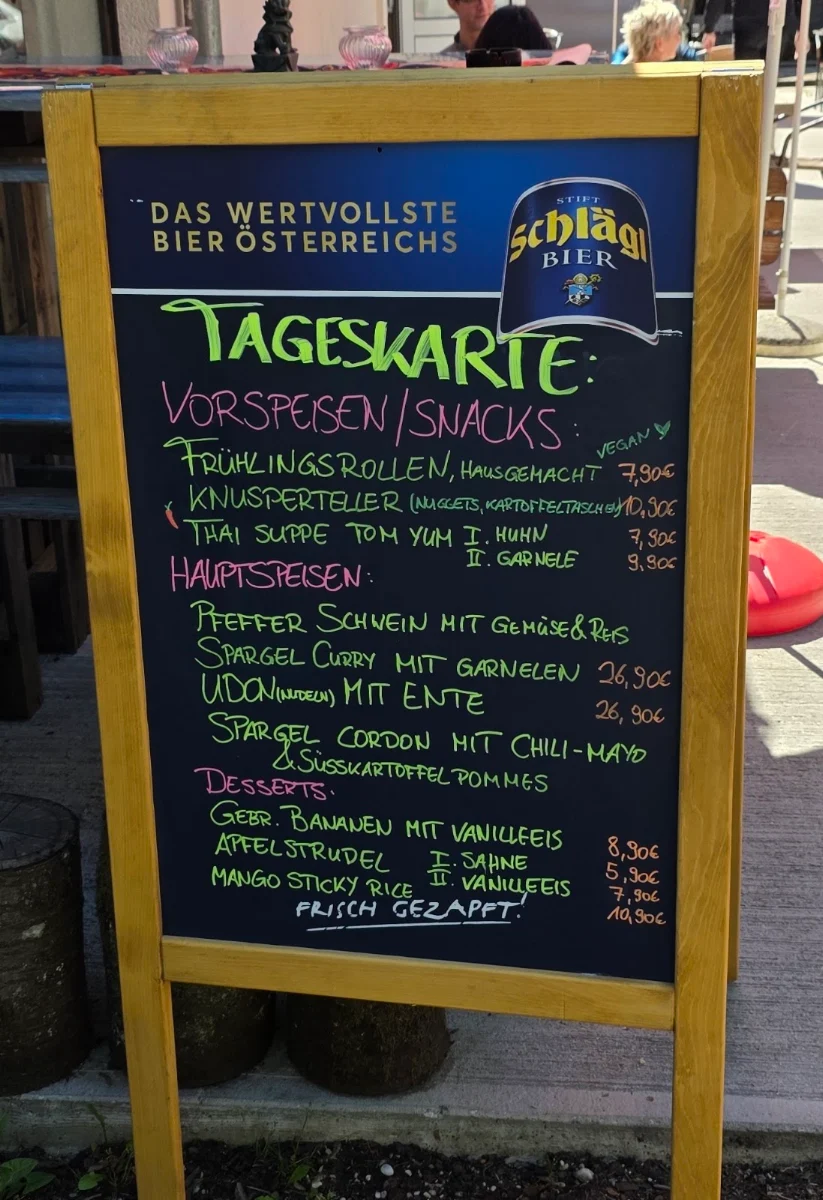 DAS WERTVOLLSTE
BIER ÖSTERREICHS
STIFT
Schlägl
BIER
TAGESKARTE:
VORSPEISEN/SNACKS:
VEGAN
FRÜHLINGSROLLEN, HAUSGEMACHT 7,90€
KNUSPERTELLER (NUGGETS, KARTOFFELTASCHEN) 10,90€
THAI SUPPE TOM YUM I. HUHN 7,90€
II. GARNELE 9,90€
HAUPTSPEISEN:
PFEFFER SCHWEIN MIT GEMÜSE & REIS
SPARGEL CURRY MIT GARNELEN 26,90€
UDON (NUDELN) MIT ENTE 26,90€
SPARGEL CORDON MIT CHILI-MAYO
& SÜSSKARTOFFEL POMMES
DESSERTS:
GEBR. BANANEN MIT VANILLEEIS 8,90€
APFELSTRUDEL I. SAHNE 5,90€
II. VANILLEEIS 7,90€
MANGO STICKY RICE 10,90€
FRISCH GEZAPFT!